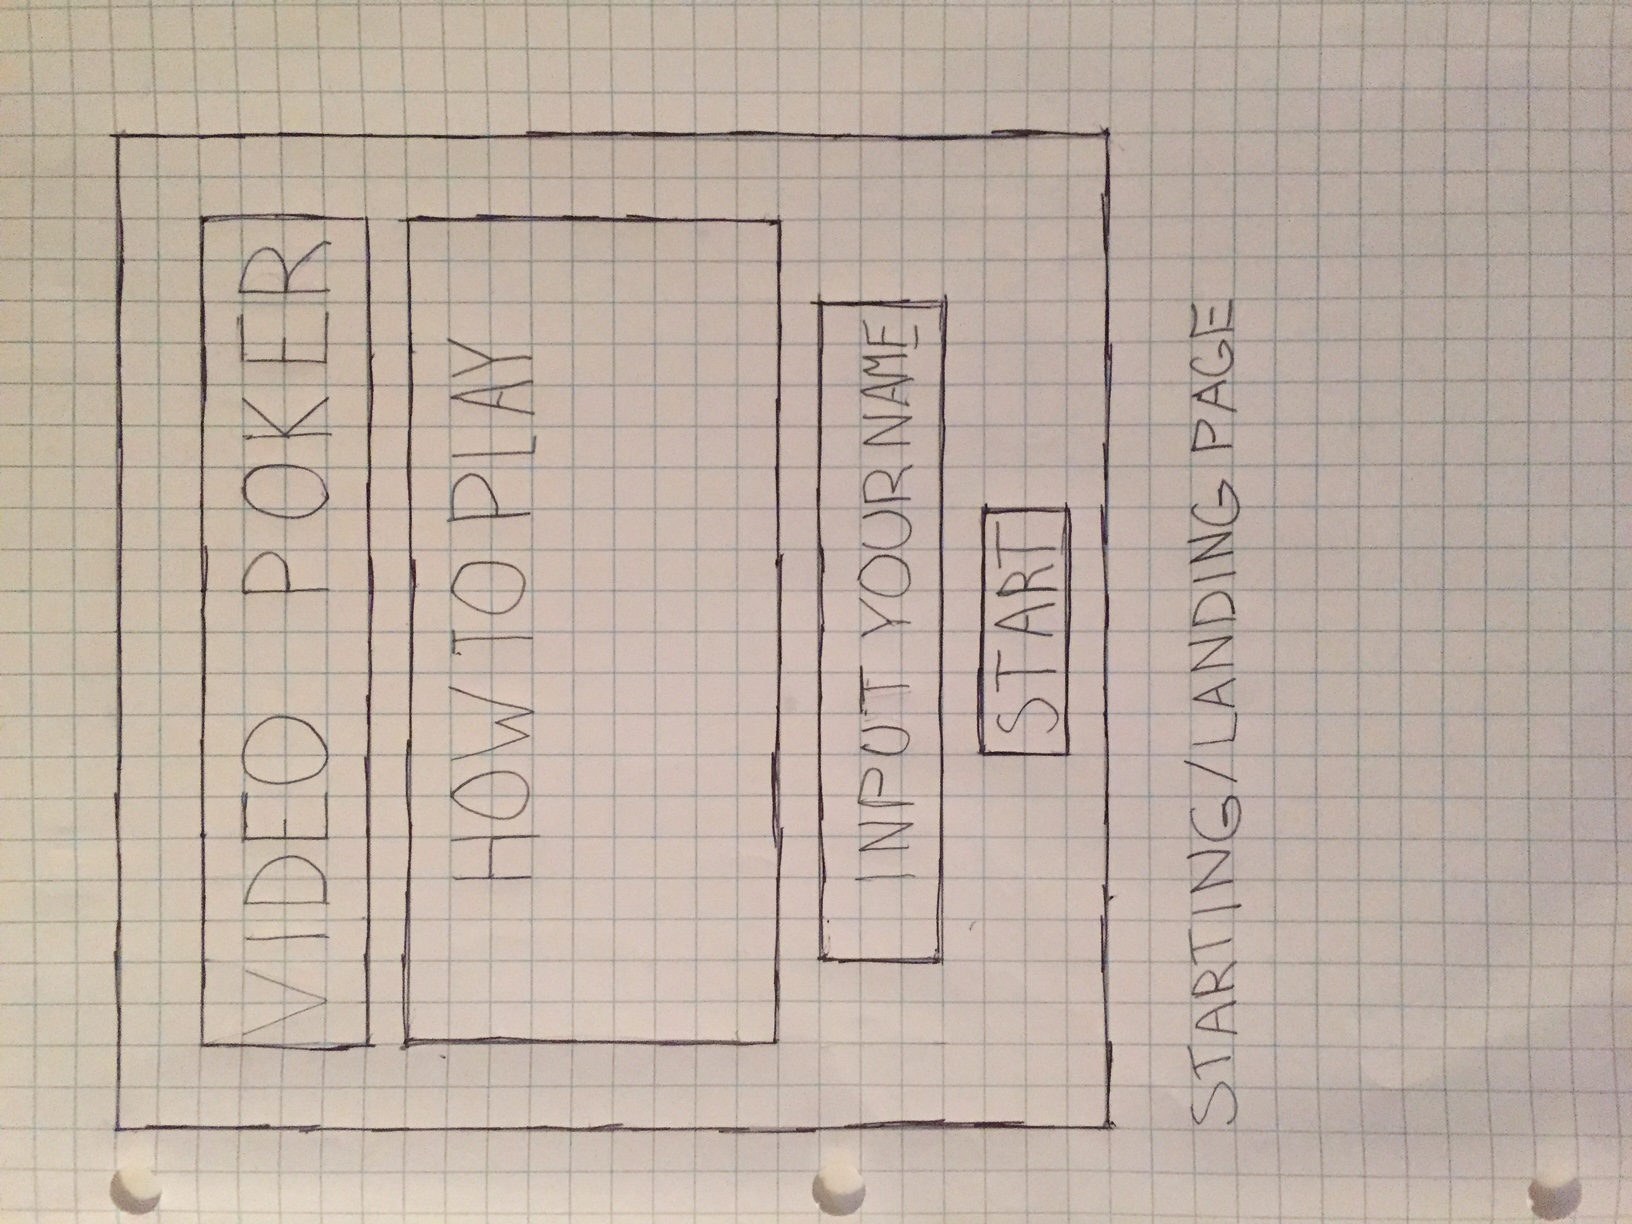 VIDEO POKER
HOW TO PLAY
INPUT YOUR NAME
START
STARTING/LANDING PAGE